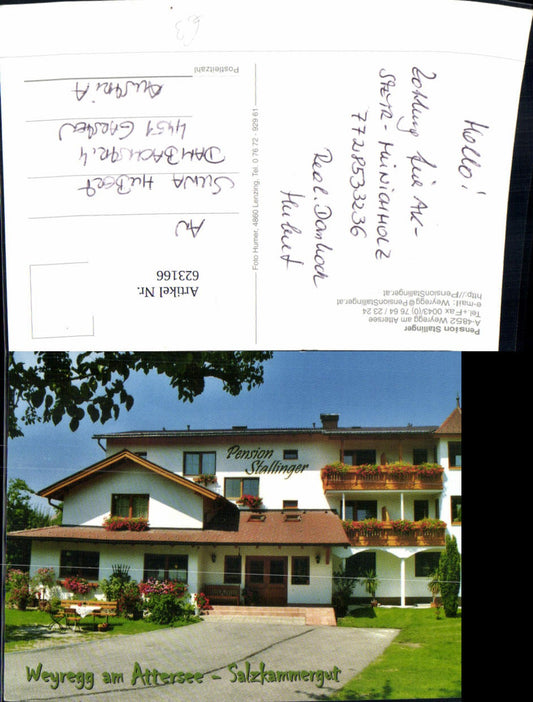 63
Hallo!
Zahlung für AK-
STEYR - MÜNICHHOLZ
7728533236
Hubert
AN
SILVIA HUBERT
DAMBACHSTR. 4
4451 GARSTEN
AUSTRIA
Postleitzahl
Foto Humer, 4860 Lenzing, Tel. 0 76 72 - 929 61
Artikel Nr.
623166
Pension Stallinger
A-4852 Weyregg am Attersee
Tel.+Fax 0043/(0) 76 64 / 23 24
e-mail: Weyregg@PensionStallinger.at
http://PensionStallinger.at
Pension
Stallinger
Weyregg am Attersee - Salzkammergut